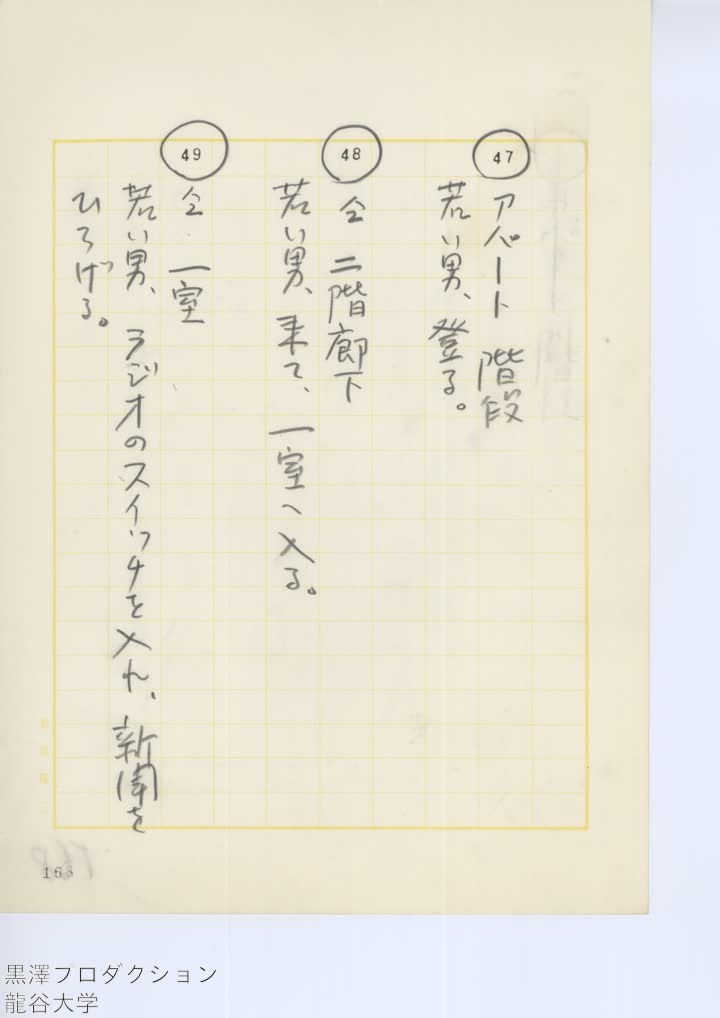 47
アパート 階段
若い男、登る。
48
仝 二階廊下
若い男、来て、一室へ入る。
49
仝 一室
若い男、ラジオのスイッチを入れ、新聞を
ひろげる。
168
黒澤プロダクション
龍谷大学